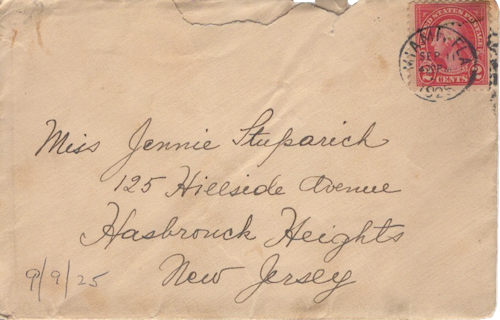 UNITED STATES POSTAGE
MIAMI, FLA.
SEP
1925
2 CENTS 2
Miss Jennie Stuparich
125 Hillside Avenue
Hasbrouck Heights
New Jersey
9/9/25